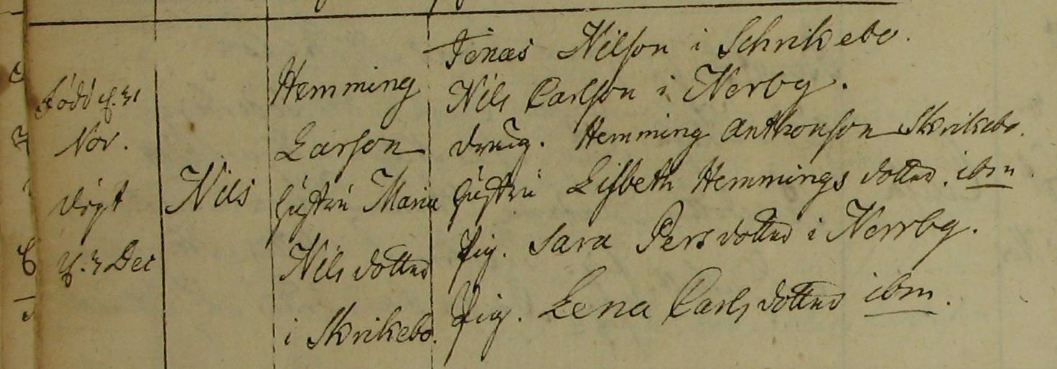 Jonas Nilson i Schrikebo.
Född d. 31
Nov.
döpt
d. 3 Dec
Nils
Hemming
Larson
Hustru Maria
Nils dotter
i Skrikebo.
Nils Carlson i Nerby.
dräng. Hemming Anthonson Skrikebo.
hustru Lisbeth Hemmings dotter. ibm
Pig. Sara Pers dotter i Nerrby.
Pig. Lena Carls dotter ibm.